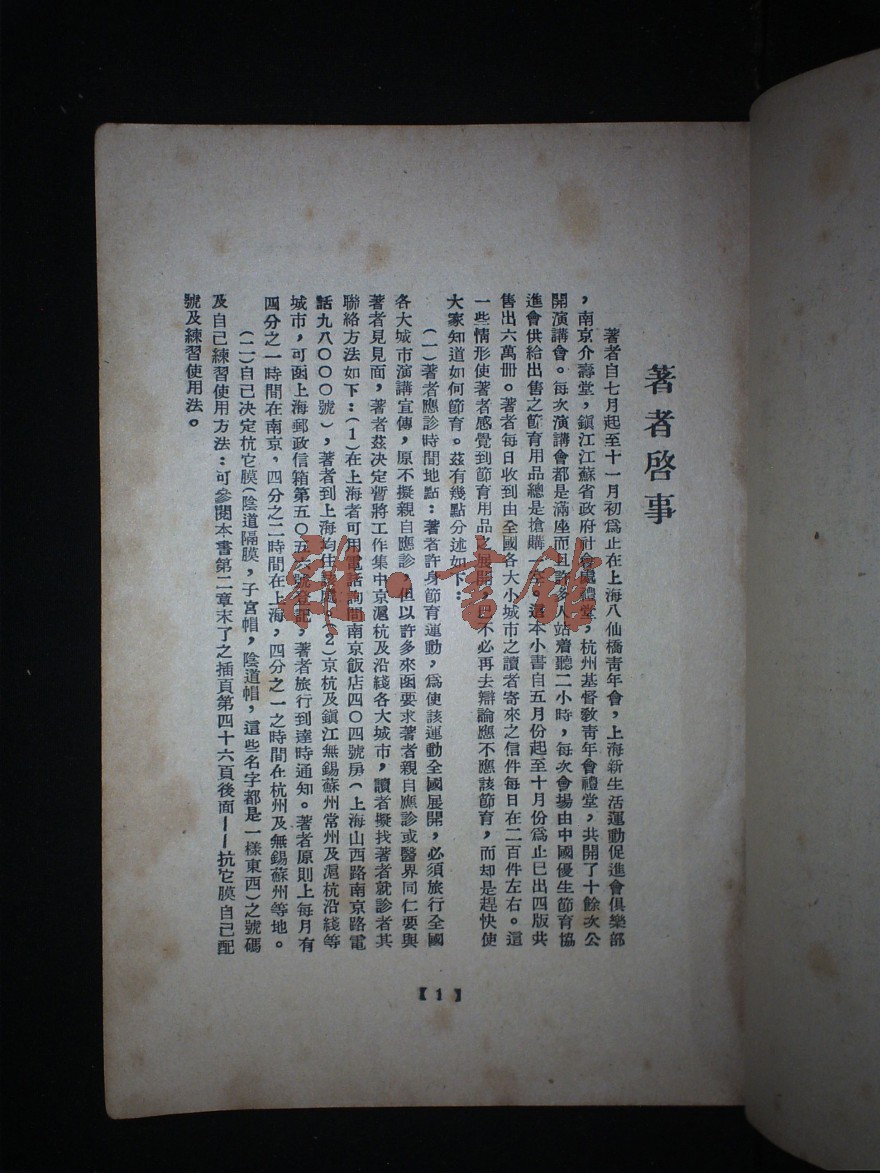 著者啓事
著者自七月起至十一月初爲止在上海八仙橋靑年會，上海新生活運動促進會俱樂部
，南京介壽堂，鎭江江蘇省政府社會處禮堂，杭州基督敎靑年會禮堂，共開了十餘次公
開演講會。每次演講會都是滿座而且許多人站着聽二小時，每次會場由中國優生節育協
進會供給出售之節育用品總是搶購一全。這本小書自五月份起至十月份爲止已出四版共
售出六萬册。著者每日收到由全國各大小城市之讀者寄來之信件每日在二百件左右。這
一些情形使著者感覺到節育用品之展開，已不必再去辯論應不應該節育，而知是趕快使
大家知道如何節育。茲有幾點分述如下：
（一）著者應診時間地點：著者許身節育運動，爲使該運動全國展開，必須旅行全國
各大城市演講宣傳，原不擬親自應診，但以許多來函要求著者親自應診或醫界同仁要與
著者見見面，著者茲決定暫將工作集中京滬杭及沿綫各大城市，讀者擬找著者就診者其
聯絡方法如下：(1)在上海者可用電話詢問南京飯店四〇四號房（上海山西路南京路電
話九八〇〇〇號），著者到上海均住該處。(2)京杭及鎭江無錫蘇州常州及滬杭沿綫等
城市，可函上海郵政信箱第五〇五六號登記，著者旅行到達時通知。著者原則上每月有
四分之一時間在南京，四分之二時間在上海，四分之一之時間在杭州及無錫蘇州等地。
（二）自己決定抗它膜（陰道隔膜，子宮帽，陰道帽，這些名字都是一樣東西）之號碼
及自己練習使用方法：可參閱本書第二章末了之插頁第四十六頁後面——抗它膜自己配
號及練習使用法。
【1】
雜·書館